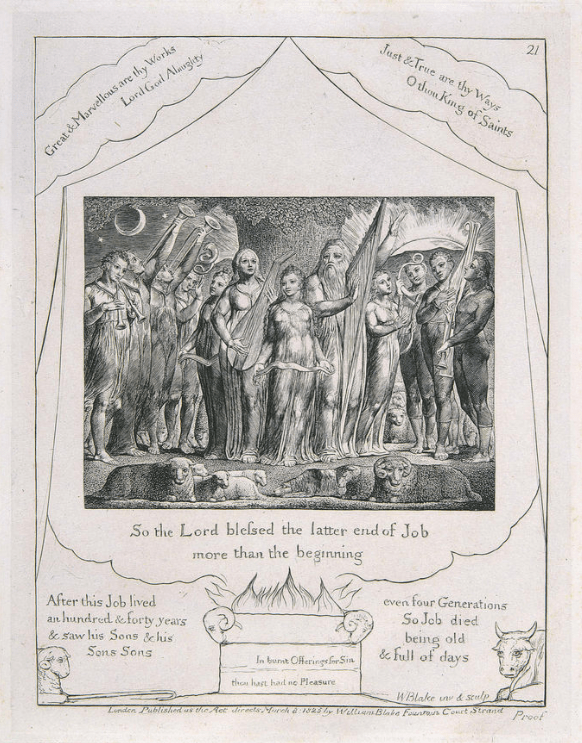 21
Great & Marvellous are thy Works
Lord God Almighty
Just & True are thy Ways
O thou King of Saints
So the Lord blessed the latter end of Job
more than the beginning
After this Job lived
an hundred & forty years
& saw his Sons & his
Sons Sons
even four Generations
So Job died
being old
& full of days
In burnt Offerings for Sin
thou hast had no Pleasure
WBlake inv & sculp
London Published as the Act directs March 8: 1825 by William Blake Fountain Court Strand
Proof